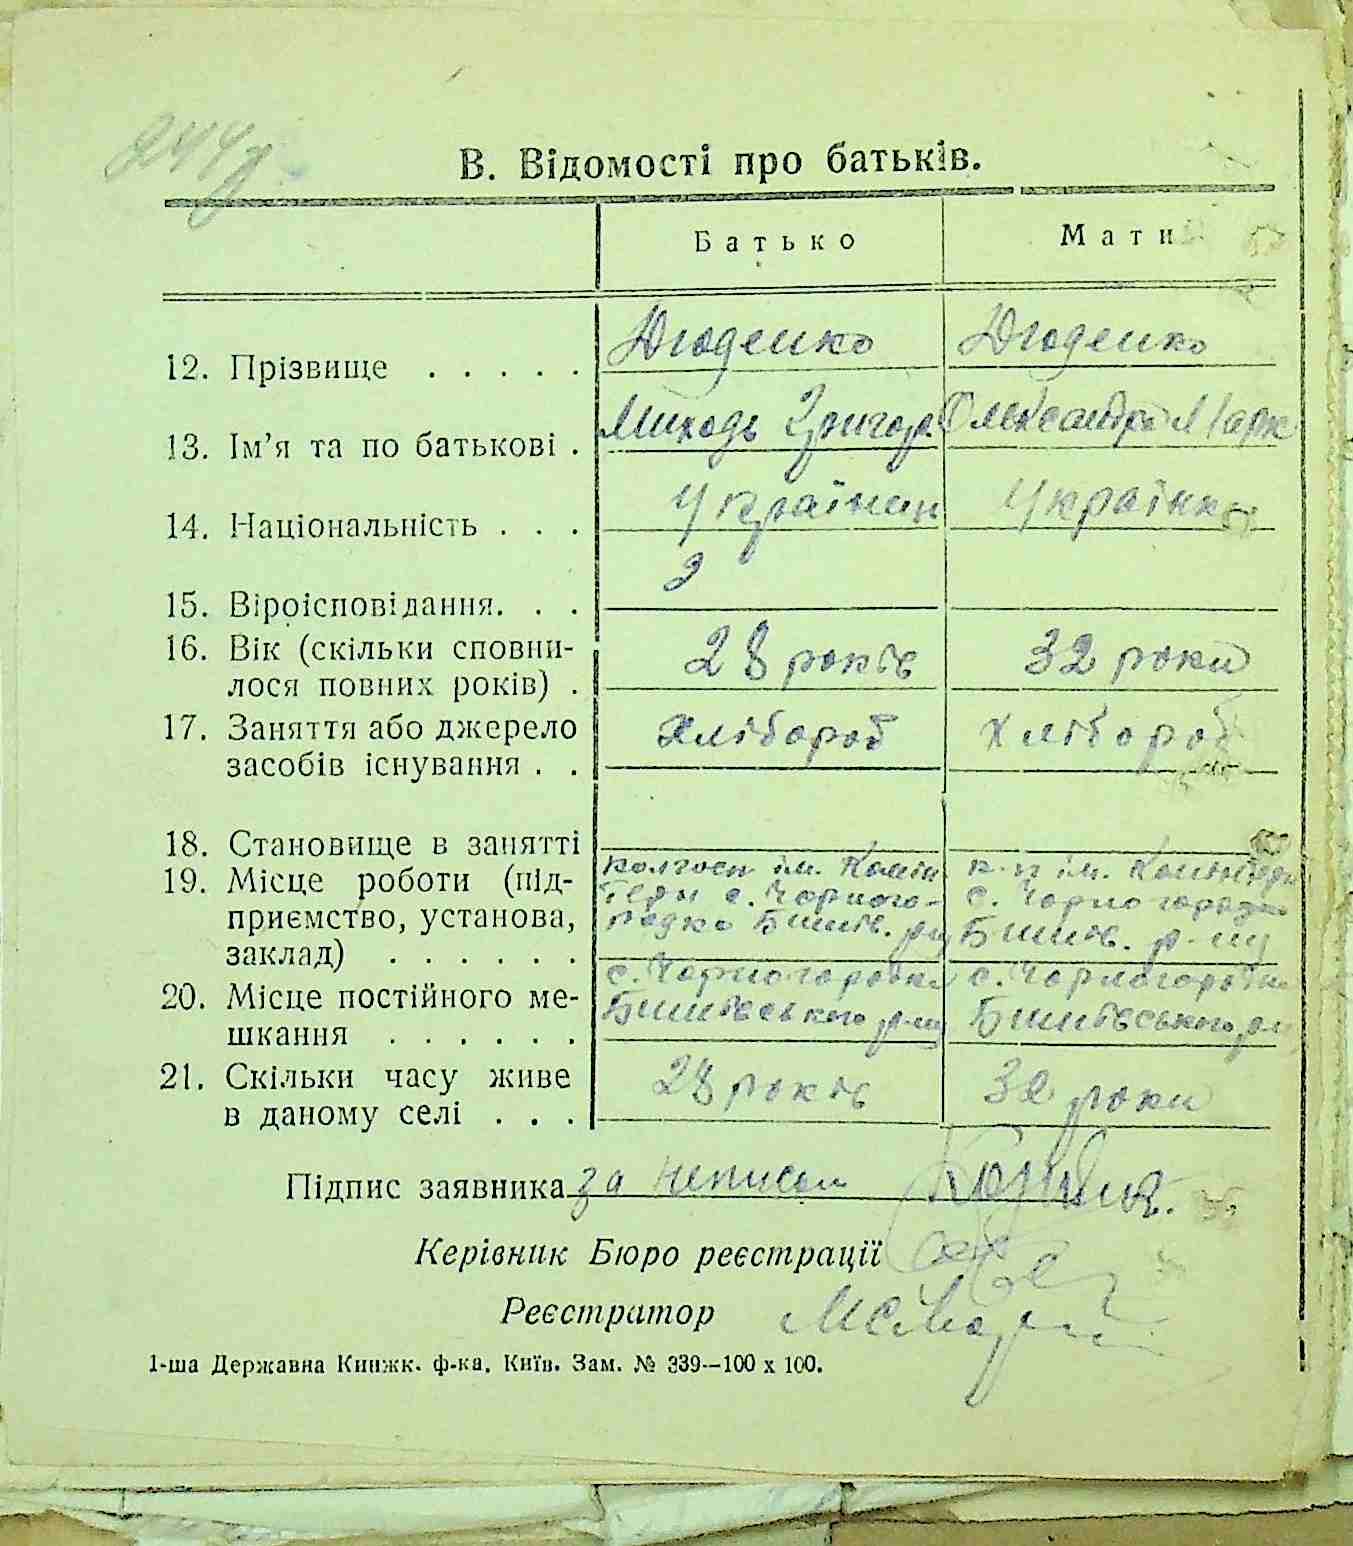 244
В. Відомості про батьків.
Батько Мати
12. Прізвище . . . . . Дгоденко Дгоденко
13. Ім’я та по батькові . Миходь Григор. Олександра Марк
14. Національність . . . Українец Українка
15. Віроісповідання. . .
16. Вік (скільки сповни- 28 років 32 роки
лося повних років) .
17. Заняття або джерело хлібороб хлібороб
засобів існування . .
18. Становище в занятті
19. Місце роботи (під- колгосп ім. Комін к-п ім. Комінтерн
приємство, установа, терн с. Чорного- с. Чорногородка
заклад) . . . . . . родка Бишів. р-ну Бишів. р-ну
20. Місце постійного ме- с. Чорногородка с. Чорногородка
шкання . . . . . . Бишівського р-ну Бишівського р-ну
21. Скільки часу живе 28 років 32 роки
в даному селі . . .
Підпис заявника за неписем
Керівник Бюро реєстрації
Реєстратор
1-ша Державна Книжк. ф-ка. Київ. Зам. № 339—100 х 100.